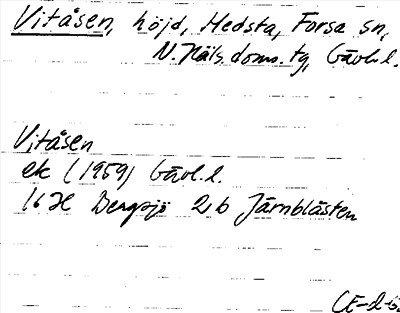 Vitåsen, höjd, Hedsta, Forsa sn,
N. Häls. doms. tg, Gävl. l.
Vitåsen
ek (1959) Gävl. l.
16 H Bergsjö 2 b Järnblästen